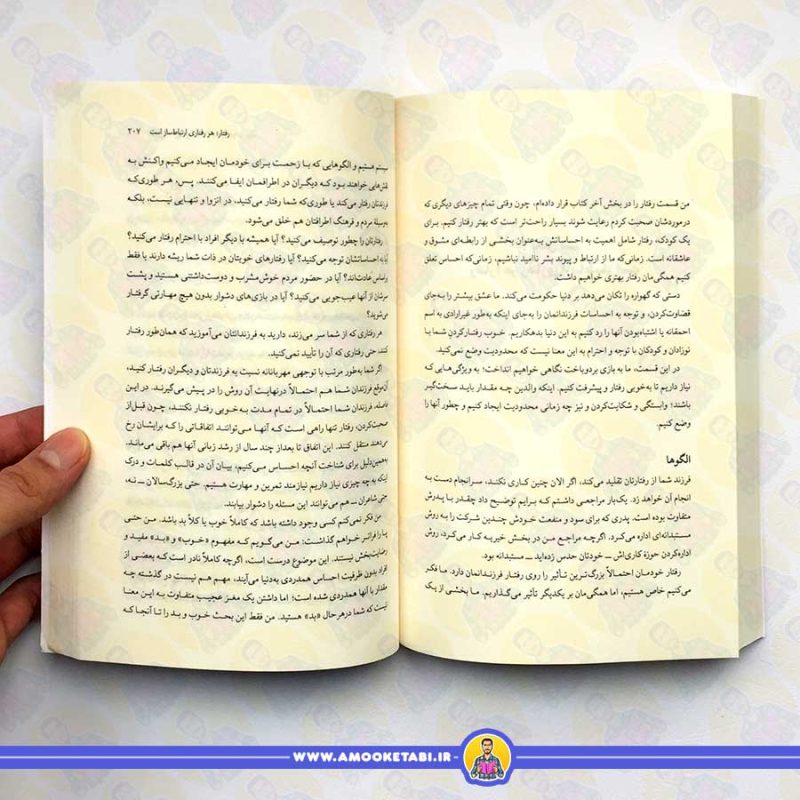 من قسمت رفتار را در بخش آخر کتاب قرار داده‌ام، چون وقتی تمام چیزهای دیگری که
درموردشان صحبت کردم رعایت شوند بسیار راحت‌تر است که بهتر رفتار کنیم. برای
یک کودک، رفتار شامل اهمیت به احساساتش به‌عنوان بخشی از رابطه‌ای مشوق و
عاشقانه است. زمانی‌که ما از ارتباط و پیوند بشر ناامید نباشیم، زمانی‌که احساس تعلق
کنیم همگی‌مان رفتار بهتری خواهیم داشت.
دستی که گهواره را تکان می‌دهد بر دنیا حکومت می‌کند. ما عشق بیشتر را به‌جای
قضاوت‌کردن، و توجه به احساسات فرزندانمان را به‌جای اینکه به‌طور غیرارادی به اسم
احمقانه یا اشتباه‌بودن آنها را رد کنیم به این دنیا بدهکاریم. خوب رفتارکردنِ شما با
نوزادان و کودکان با توجه و احترام به این معنا نیست که محدودیت وضع نمی‌کنید.
در این قسمت، ما به بازی بردوباخت نگاهی خواهیم انداخت؛ به ویژگی‌هایی که
نیاز داریم تا به‌خوبی رفتار و پیشرفت کنیم. اینکه والدین چه مقدار باید سخت‌گیر
باشند؛ وابستگی و شکایت‌کردن و نیز چه زمانی محدودیت ایجاد کنیم و چطور آنها را
وضع کنیم.
الگوها
فرزند شما از رفتارتان تقلید می‌کند، اگر الان چنین کاری نکند، سرانجام دست به
انجام آن خواهد زد. یک‌بار مراجعی داشتم که برایم توضیح داد چقدر با پدرش
متفاوت بوده است. پدری که برای سود و منفعت خودش چندین شرکت را به روش
مستبدانه‌ای اداره می‌کرد. اگرچه مراجع من در بخش خیریه کار می‌کرد، روش
اداره‌کردن حوزهٔ کاری‌اش ــ خودتان حدس زده‌اید ــ مستبدانه بود.
رفتار خودمان احتمالاً بزرگ‌ترین تأثیر را روی رفتار فرزندانمان دارد. ما فکر
می‌کنیم خاص هستیم، اما همگی‌مان بر یکدیگر تأثیر می‌گذاریم. ما بخشی از یک
رفتار: هر رفتاری ارتباط‌ساز است ۲۰۷
سیستم هستیم و الگوهایی که با زحمت برای خودمان ایجاد می‌کنیم واکنش به
نقش‌هایی خواهند بود که دیگران در اطرافمان ایفا می‌کنند. پس، هر طوری‌که
فرزندتان رفتار می‌کند یا طوری‌که شما رفتار می‌کنید، در انزوا و تنهایی نیست، بلکه
به‌وسیلهٔ مردم و فرهنگ اطرافتان هم خلق می‌شود.
رفتارتان را چطور توصیف می‌کنید؟ آیا همیشه با دیگر افراد با احترام رفتار می‌کنید؟
آیا به احساساتشان توجه می‌کنید؟ آیا رفتارهای خوبتان در ذات شما ریشه دارند یا فقط
براساس عادت‌اند؟ آیا در حضور مردم خوش‌مشرب و دوست‌داشتنی هستید و پشت
سرشان از آنها عیب‌جویی می‌کنید؟ آیا در بازی‌های دشوار بدون هیچ مهارتی گرفتار
می‌شوید؟
هر رفتاری که از شما سر می‌زند، دارید به فرزندانتان می‌آموزید که همان‌طور رفتار
کنند، حتی رفتاری که آن را تأیید نمی‌کنید.
اگر شما به‌طور مرتب با توجهی مهربانانه نسبت به فرزندتان و دیگران رفتار کنید،
آن‌موقع فرزندان شما هم احتمالاً درنهایت آن روش را در پیش می‌گیرند. در این
فاصله، فرزندان شما احتمالاً در تمام مدت به خوبی رفتار نکنند، چون قبل‌از
صحبت‌کردن، رفتار تنها راهی است که آنها می‌توانند اتفاقاتی را که برایشان رخ
می‌دهند منتقل کنند. این اتفاق تا بعداز چند سال از رشد زبانی آنها هم باقی می‌ماند،
به‌همین‌دلیل برای شناخت آنچه احساس می‌کنیم، بیان آن در قالب کلمات و درک
اینکه به چه چیزی نیاز داریم نیازمند تمرین و مهارت هستیم. حتی بزرگ‌سالان ــ نه،
حتی شاعران ــ هم می‌توانند این مسئله را دشوار بیابند.
من فکر نمی‌کنم کسی وجود داشته باشد که کاملاً خوب یا کلاً بد باشد. من حتی
پا را فراتر هم خواهم گذاشت: من می‌گویم که مفهوم «خوب» و «بد» مفید و
رضایت‌بخش نیستند. این موضوع درست است، اگرچه کاملاً نادر است که بعضی از
افراد بدون ظرفیت احساس همدردی به‌دنیا می‌آیند، مهم هم نیست در گذشته چه
مقدار با آنها همدردی شده است؛ اما داشتن یک مغز عجیب متفاوت به این معنا
نیست که شما درهرحال «بد» هستید. من فقط این بحث خوب و بد را تا آنجا که
WWW.AMOOKETABI.IR